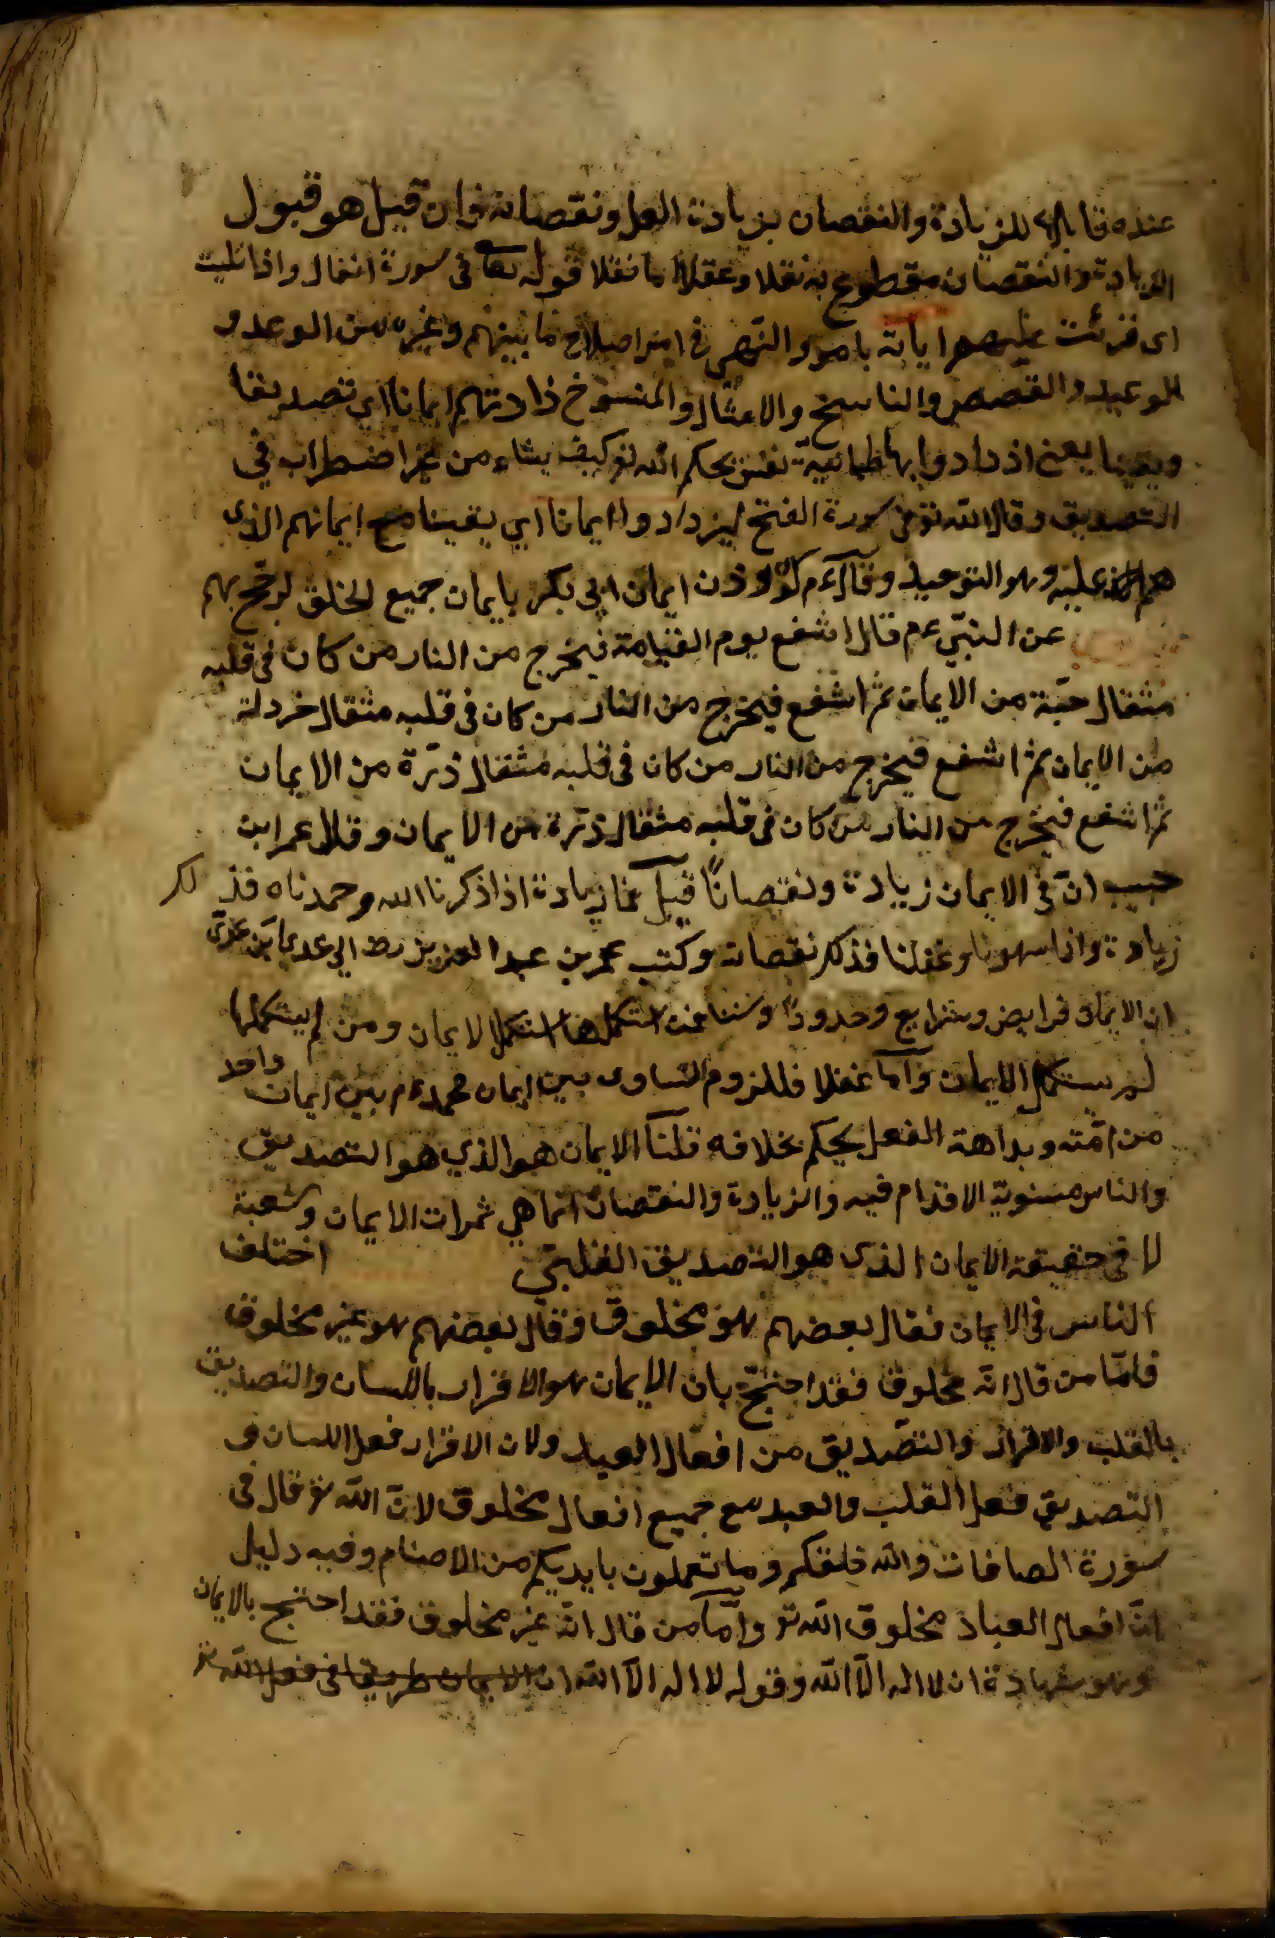 عنده قابلا للزيادة والنقصان بزيادة العمل ونقصانه فان قيل هو قبول
الزيادة والنقصان مقطوع به نقلا وعقلا اما نقلا قوله تعا فى سورة انفال واذا تليت
اى قرئت عليهم اياته بامر والنهى فى امر اصلاح ما بينهم وغيره من الوعد و
الوعيد والقصص والناسخ والامثال والمنسوخ زادتهم ايمانا اي تصديقا
ويقينا يعنى ازدادوا بها طمانية نفس بحكم الله تع كيف يشاء من غير اضطراب في
التصديق وقال الله تع فى سورة الفتح ليزدادوا ايمانا اي يقينا مع ايمانهم الذى
هم عليه وهو التوحيد وقال ءم لو وزن ايمان ابى بكر بايمان جميع الخلق لرجح بهم
عن النبى ءم قال اشفع يوم القيامة فيخرج من النار من كان فى قلبه
مثقال حبّة من الايمان ثم اشفع فيخرج من النار من كان فى قلبه مثقال خردلة
من الايمان ثم اشفع فيخرج من النار من كان فى قلبه مثقال ذرّة من الايمان
ثم اشفع فيخرج من النار من كان فى قلبه مثقال ذرّة من الايمان وقال عمر ابن
حبيب انّ فى الايمان زيادة ونقصانًا قيل فما زيادة اذا ذكرنا الله وحمدناه فذ لك
زيادة واذا سهونا وغفلنا فذلك نقصانه وكتب عمر بن عبد العزيز رض الى عدي ابن عدىّ
ان الايمان فرايض وشرايع وحدودًا وسننا فمن استكملها استكمل الايمان ومن لم يستكملها
لم يستكمل الايمان وامّا عقلا فللزوم التساوى بين ايمان محمد ءم بين ايمان واحد
من امّته وبداهة العقل يحكم بخلافه قلنا الايمان هو الذي هو التصديق
والناس مستوية الاقدام فيه والزيادة والنقصان انّما هي ثمرات الايمان وشعبة
لا فى حقيقة الايمان الذى هو التصديق القلبىّ اختلف
الناس فى الايمان فقال بعضهم هو مخلوق وقال بعضهم هو غير مخلوق
فامّا من قال انّه مخلوق فقد احتجّ بان الايمان هو الاقرار باللسان والتصديق
بالقلب والاقرار والتصّديق من افعال العباد ولان الاقرار فعل اللسان و
التصديق فعل القلب والعبد مع جميع افعال مخلوق لانّ الله تع قال فى
سورة الصافات والله خلقكم وما تعملون بايديكم من الاصنام وفيه دليل
انّ افعال العباد مخلوق الله تع وامّا من قال انّه غير مخلوق فقد احتج بالايمان
وهو شهادة ان لا اله الّا الله وقوله لا اله الّا الله ان الايمان طريقا فى فعل الله تع